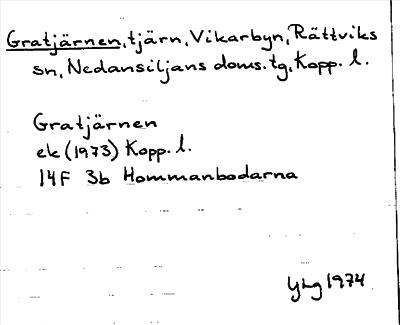 Gratjärnen, tjärn, Vikarbyn, Rättviks
sn, Nedansiljans doms.tg, Kopp. l.
Gratjärnen
ek (1973) Kopp. l.
14F 3b Hommanbodarna
YLg 1974